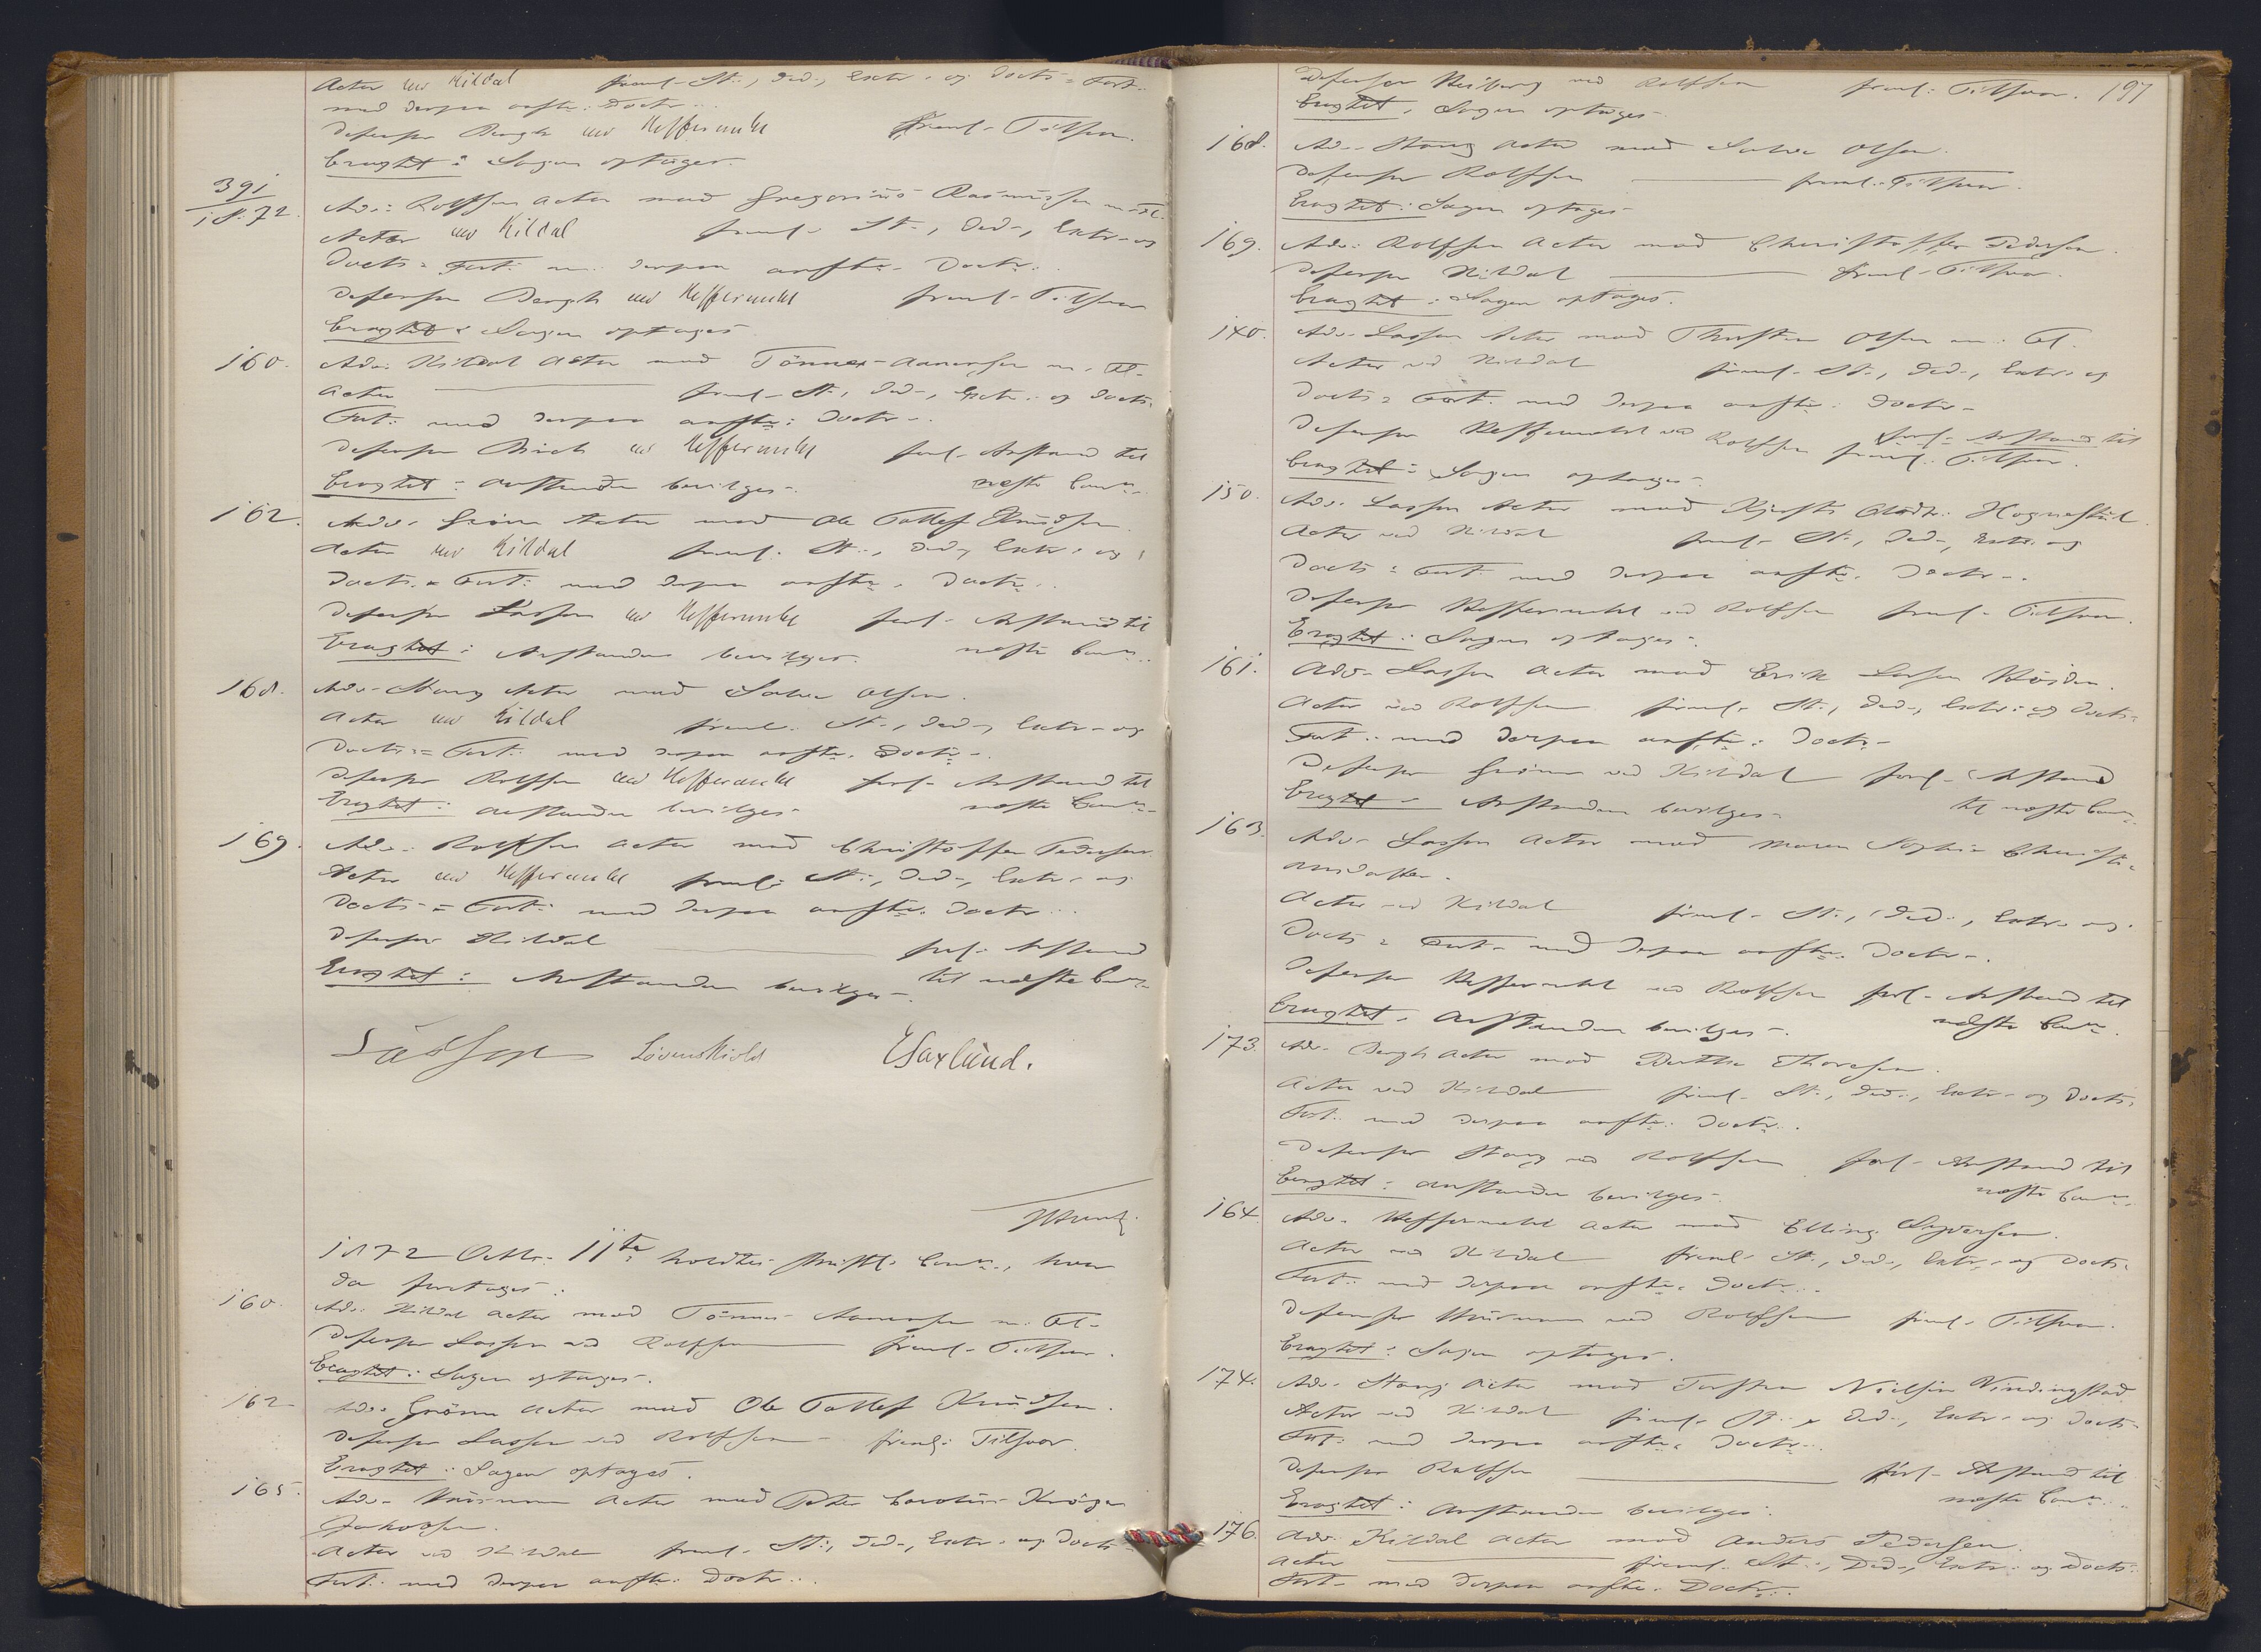 Actor ved Kildal freml. St., Ded., Extr. og Docts. Fort.
med derpaa anfte. Doctr.
Defensor Bergh ved Heffermehl freml. Tilsvar.
Eragtet: Sagen optages.
391/1872. Adv. Rolffsen Actor mod Gregorius Rasmussen m. Fl.
Actor ved Kildal freml. St., Ded., Extr. og
Docts. Fort. m. derpaa anfte. Doctr.
Defensor Bergh ved Heffermehl freml. Tilsvar
Eragtet: Sagen optages.
160. Adv. Kildal Actor mod Tönnes Aanensen m. Fl.
Actor freml. St., Ded., Extr. og Docts.
Fort. med derpaa anfte. Doctr.
Defensor Birch ved Heffermehl forl. Anstand til
Eragtet: Anstanden bevilges. næste
162. Adv. Grönn Actor mod Ole Tollef Knudsen.
Actor ved Kildal freml. St., Ded., Extr. og
Docts. Fort. med derpaa anfte. Doctr.
Defensor Lassen ved Heffermehl forl. Anstand til
Eragtet: Anstanden bevilges. næste
168. Adv. Stang Actor mod Olsen.
Actor ved Kildal freml. St., Ded., Extr. og
Docts. Fort. med derpaa anfte. Doctr.
Defensor Rolffsen ved Heffermehl forl. Anstand til
Eragtet: Anstanden bevilges. næste
169. Adv. Rolffsen Actor mod Christoffer Pedersen
Actor ved Heffermehl freml. St., Ded., Extr. og
Docts. Fort. med derpaa anfte. Doctr.
Defensor Kildal forl. Anstand
Eragtet: Anstanden bevilges. til næste
Lasson Lövenskiold ESaxlund.
1872 Octbr. 11te holdtes
da foretages:
160. Adv. Kildal Actor mod Tönnes Aanensen m. Fl.
Defensor Lassen ved Rolffsen freml. Tilsvar.
Eragtet: Sagen optages.
162 Adv. Grönn Actor mod Ole Tollef Knudsen.
Defensor Lassen ved Rolffsen freml. Tilsvar.
Eragtet: Sagen optages.
165. Adv. Actor mod Peter Kröger
Jakobsen.
Actor ved Kildal freml. St., Ded., Extr. og Docts.
Fort. med derpaa anfte. Doctr.
197
Defensor Reiberg ved Rolffsen freml. Tilsvar.
Eragtet: Sagen optages.
168. Adv. Stang Actor mod Olsen.
Defensor Rolffsen freml. Tilsvar.
Eragtet: Sagen optages.
169. Adv. Rolffsen Actor mod Christoffer Pedersen.
Defensor Kildal freml. Tilsvar.
Eragtet: Sagen optages.
140. Adv. Lassen Actor mod Thorsten Olsen m. Fl.
Actor ved Kildal freml. St., Ded., Extr. og
Docts. Fort. med derpaa anfte. Doctr.
Defensor Heffermehl ved Rolffsen forl. Anstand til
freml. Tilsvar.
Eragtet: Sagen optages.
150. Adv. Lassen Actor mod Kjersti
Actor ved Kildal freml. St., Ded., Extr. og
Docts. Fort. med derpaa anfte. Doctr.
Defensor Heffermehl ved Rolffsen freml. Tilsvar.
Eragtet: Sagen optages.
161. Adv. Lassen Actor mod Erik Larsen
Actor ved Rolffsen freml. St., Ded., Extr. og Docts.
Fort. med derpaa anfte. Doctr.
Defensor Grönn ved Kildal forl. Anstand
Eragtet Anstanden bevilges. til næste
163. Adv. Lassen Actor mod Maren Sophie
Actor ved Kildal freml. St., Ded., Extr. og
Docts. Fort. med derpaa anfte. Doctr.
Defensor Heffermehl ved Rolffsen forl. Anstand til
Eragtet. Anstanden bevilges. næste
173. Adv. Bergh Actor mod Berthe Thoresen.
Actor ved Kildal freml. St., Ded., Extr. og Docts.
Fort. med derpaa anfte. Doctr.
Defensor Stang ved Rolffsen forl. Anstand til
Eragtet: Anstanden bevilges. næste
164. Adv. Heffermehl Actor mod Elling Syversen.
Actor ved Kildal freml. St., Ded., Extr. og Docts.
Fort. med derpaa anfte. Doctr.
Defensor ved Rolffsen freml. Tilsvar.
Eragtet: Sagen optages.
174. Adv. Stang Actor mod Torsten Nielsen Vindingstad.
Actor ved Kildal freml. St., Ded., Extr. og Docts.
Fort. med derpaa anfte. Doctr.
Defensor Rolffsen forl. Anstand til
Eragtet: Anstanden bevilges. næste
176. Adv. Kildal Actor mod Anders Pedersen.
Actor freml. St., Ded., Extr. og Docts.
Fort. med derpaa anfte. Doctr.